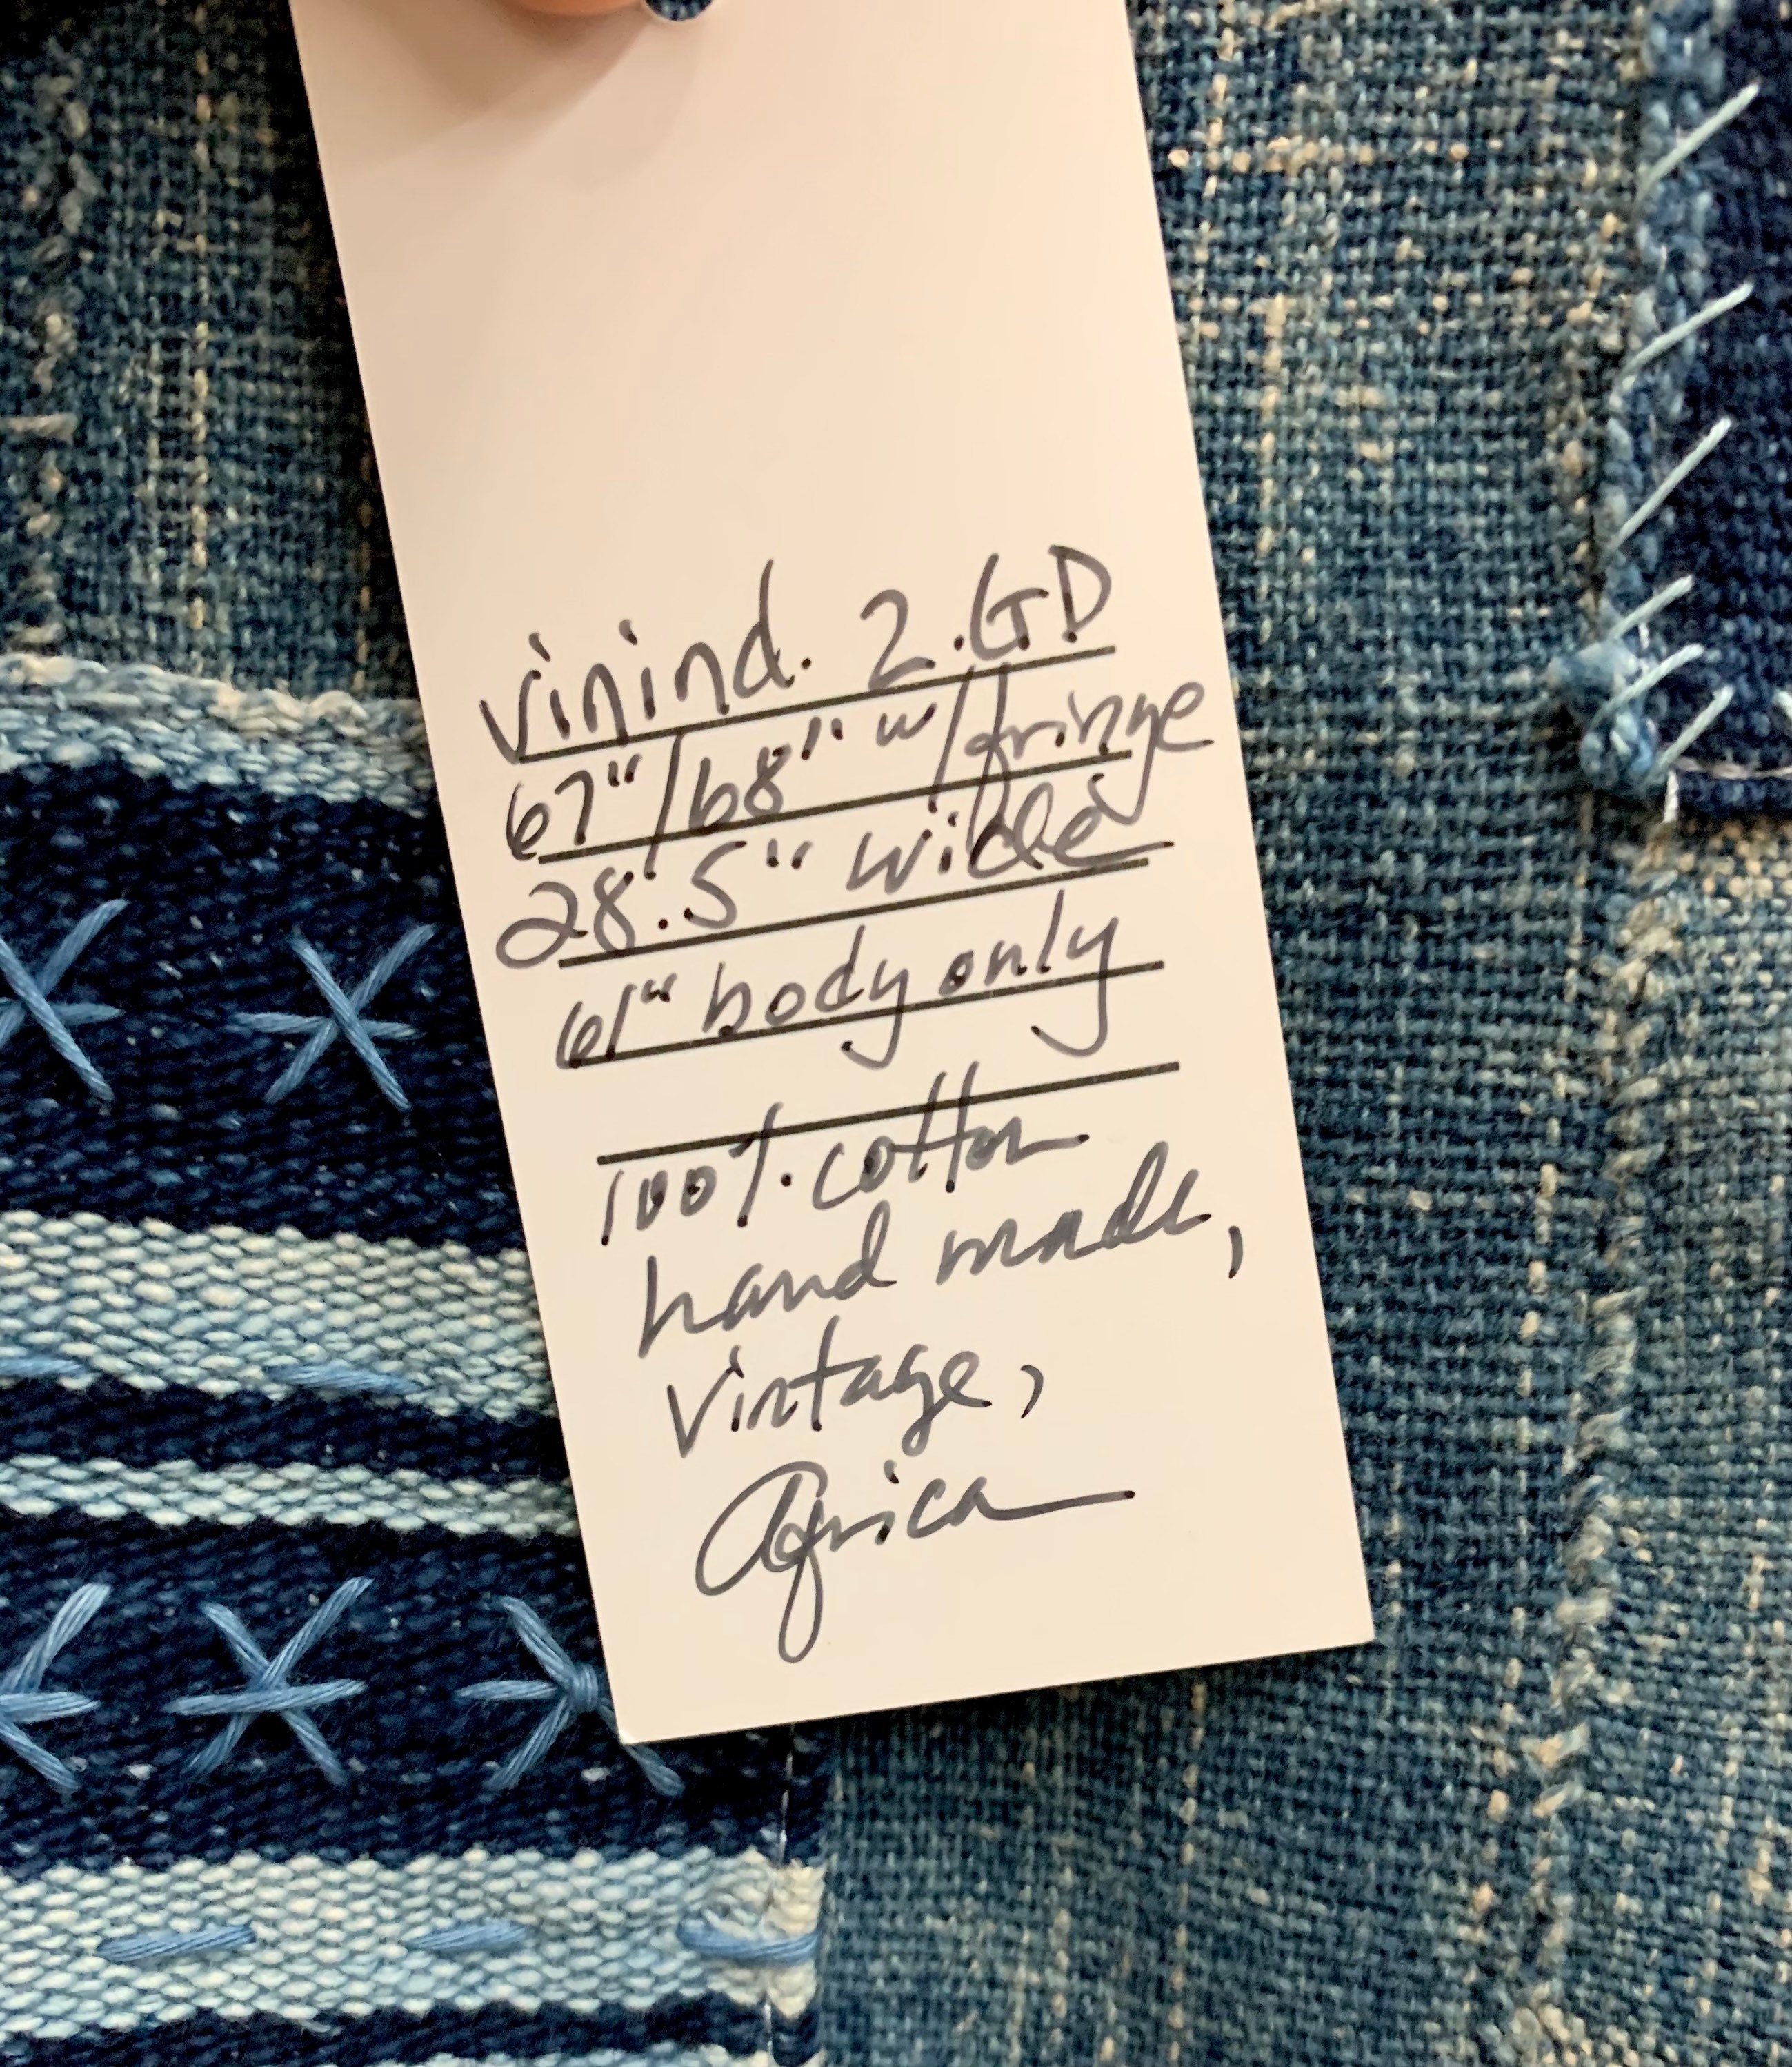 vinind. 2.GD
67"/68" w/fringe
28.5" wide
61" body only
100% cotton
hand made,
vintage,
Africa